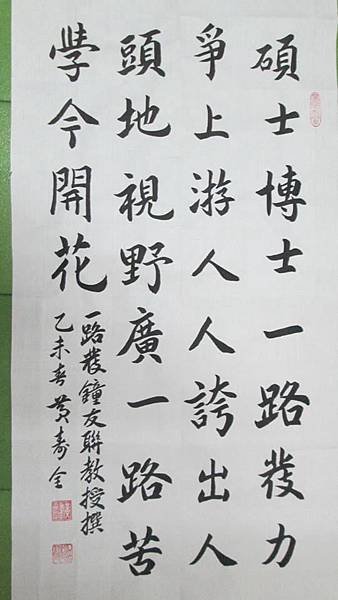 碩士博士一路發力
爭上游人人誇出人
頭地視野廣一路苦
學今開花
一路發鐘友聯教授撰
乙未春黃壽全